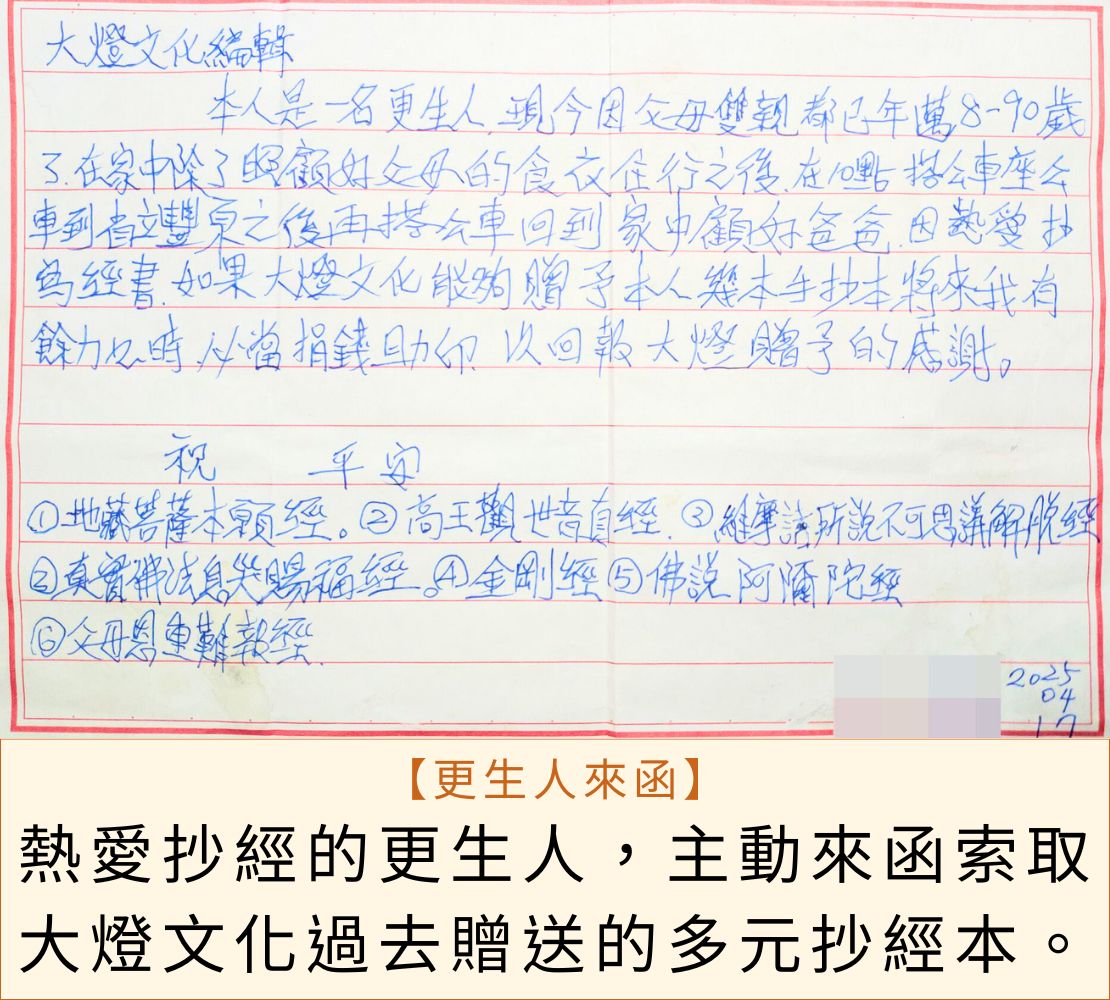 大燈文化編輯
本人是一名更生人,現今因父母雙親都已年邁8-90歲
了.在家中除了照顧好父母的食衣住行之後.在10點搭公車座公
車到省立豐原之後再搭公車回到家中顧好爸爸.因熱愛抄
寫經書.如果大燈文化能夠贈予本人幾本手抄本將來我有
餘力之時必當捐錢助印.以回報大燈贈予的感謝。
祝 平安
①地藏菩薩本願經。②高王觀世音真經.③維摩詰所說不可思議解脫經
②真實佛法息災賜福經。④金剛經⑤佛說阿彌陀經
⑥父母恩重難報經.
2025
04
17
【更生人來函】
熱愛抄經的更生人，主動來函索取
大燈文化過去贈送的多元抄經本。